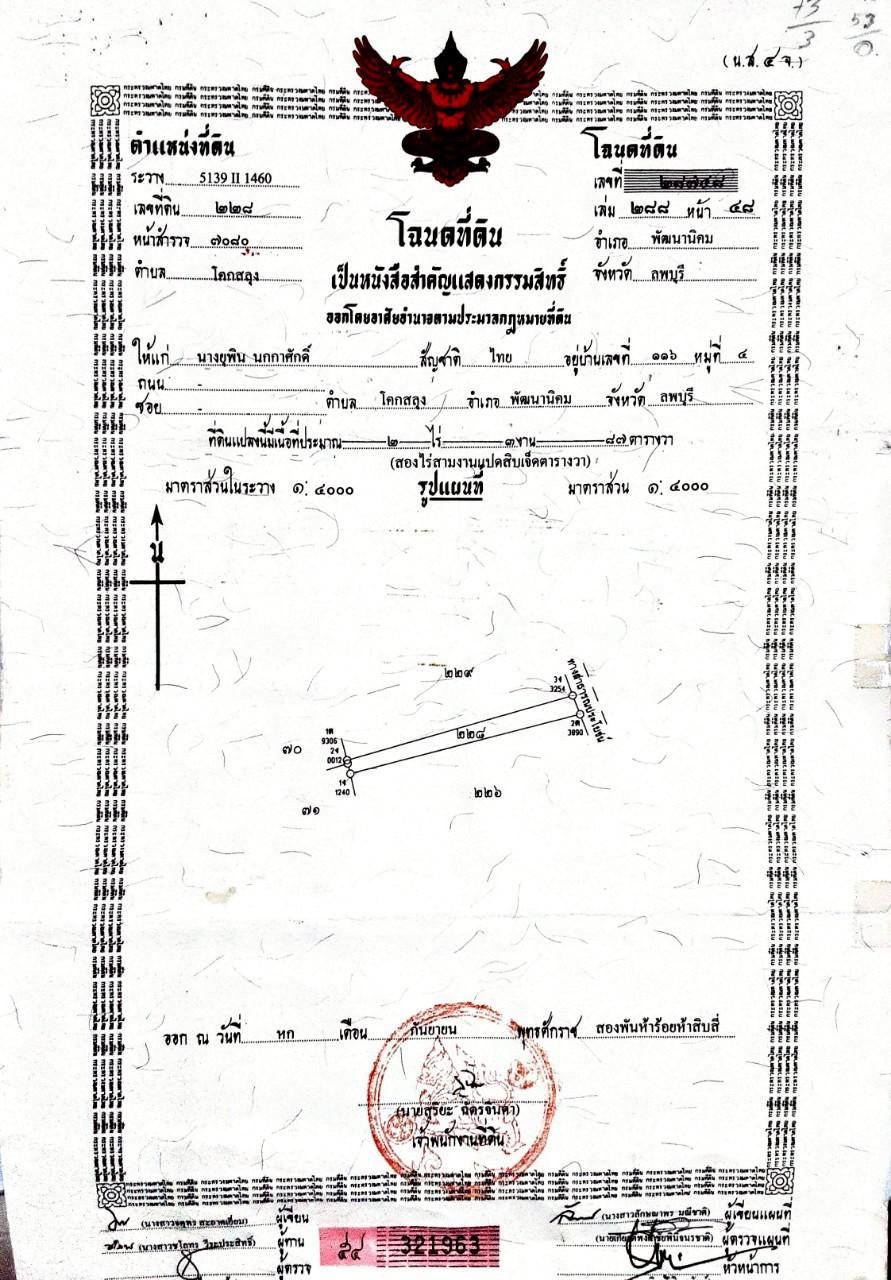 (น.ส.๔ จ.)
ตำแหน่งที่ดิน
ระวาง 5139 II 1460
เลขที่ดิน ๒๒๘
หน้าสำรวจ ๗๐๘๐
ตำบล โคกสลุง
โฉนดที่ดิน
เลขที่ ๒๘๗๔๘
เล่ม ๒๘๘ หน้า ๔๘
อำเภอ พัฒนานิคม
จังหวัด ลพบุรี
โฉนดที่ดิน
เป็นหนังสือสำคัญแสดงกรรมสิทธิ์
ออกโดยอาศัยอำนาจตามประมวลกฎหมายที่ดิน
ให้แก่ นางยุพิน นกกาศักดิ์ สัญชาติ ไทย อยู่บ้านเลขที่ ๑๑๖ หมู่ที่ ๔
ถนน -
ซอย - ตำบล โคกสลุง อำเภอ พัฒนานิคม จังหวัด ลพบุรี
ที่ดินแปลงนี้มีเนื้อที่ประมาณ ๒ ไร่ ๓ งาน ๘๗ ตารางวา
(สองไร่สามงานแปดสิบเจ็ดตารางวา)
มาตราส่วนในระวาง ๑: ๔๐๐๐ รูปแผนที่ มาตราส่วน ๑: ๔๐๐๐
น
๒๒๙
3ง
3254
ทางสาธารณประโยชน์
๒๒๘
2ต
3890
1ต
9306
๗๐
2ง
0012
1ง
1240
๗๑
๒๒๖
ออก ณ วันที่ หก เดือน กันยายน พุทธศักราช สองพันห้าร้อยห้าสิบสี่
(นายสุริยะ ฉัตรจินดา)
เจ้าพนักงานที่ดิน
ผู้เขียน
ผู้ทาน
ผู้ตรวจ
321963
(นางสาวลักษณาพร มณีชาติ) ผู้เขียนแผนที่
ผู้ตรวจแผนที่
หัวหน้าการ